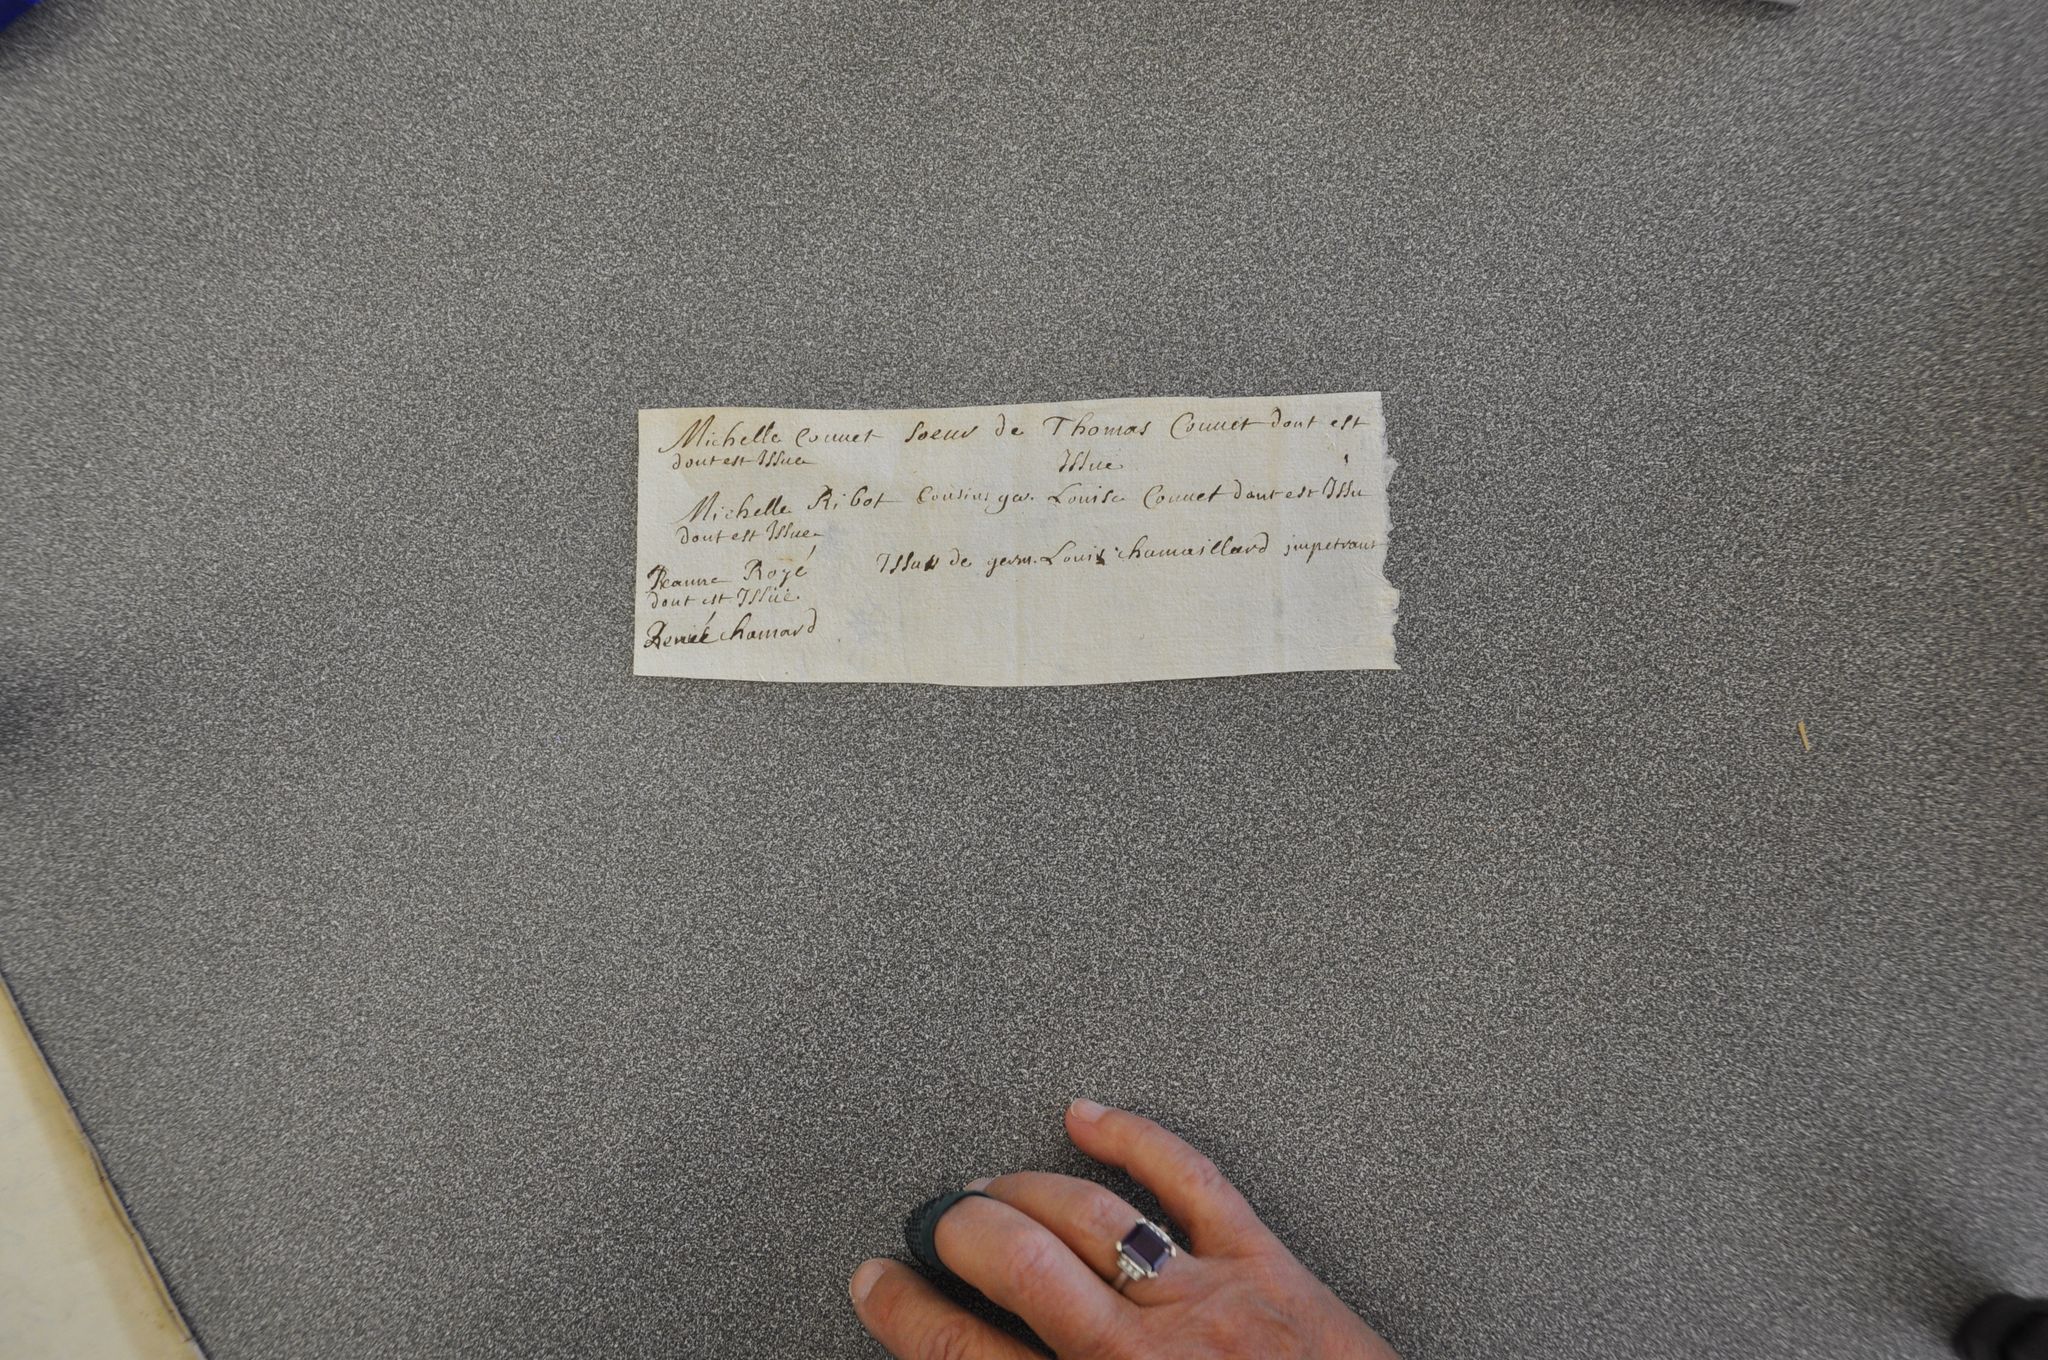 Michelle Connet soeur de Thomas Connet dont est
dont est Issue Issue
Michelle Ribot Cousins ger. Louise Connet dont est Issu
dont est Issue
Jeanne Royé Issus de germ. Louis chamaillard impetrant
dont est Issüe
Renée chamard